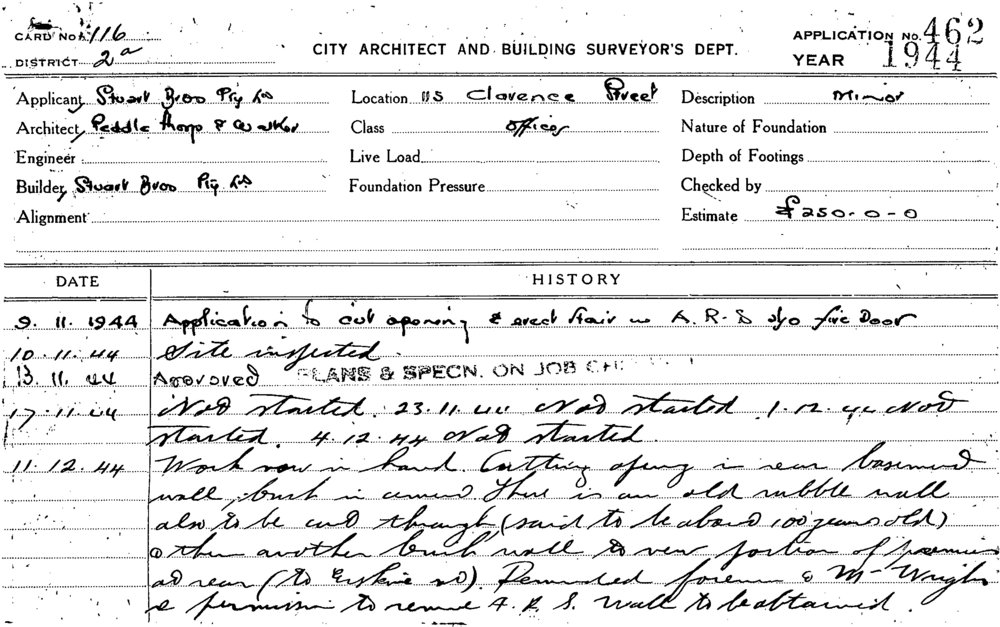 CARD NO. 116
DISTRICT 2a
CITY ARCHITECT AND BUILDING SURVEYOR'S DEPT.
APPLICATION NO. 462
YEAR 1944
Applicant Stuart Bros Pty Ld
Location 115 Clarence Street
Description Minor
Architect Peddle Thorp & Walker
Class Offices
Nature of Foundation
Engineer
Live Load
Depth of Footings
Builder Stuart Bros Pty Ld
Foundation Pressure
Checked by
Alignment
Estimate £250-0-0
DATE
HISTORY
9.11.1944 Application to cut opening & erect stair in A.R.S also fire Door
10.11.44 Site inspected.
13.11.44 Approved PLANS & SPECN. ON JOB
17.11.44 Not started. 23.11.44 Not started. 1.12.44 Not
started. 4.12.44 Not started.
11.12.44 Work now in hand. Cutting opening in rear basement
wall, brick in cement. There is an old rubble wall
also to be cut through (said to be about 100 years old)
& then another brick wall to new portion of premises
at rear (to Erskine st). Reminded foreman Mr Wright
permission to remove A.R.S. wall to be obtained.